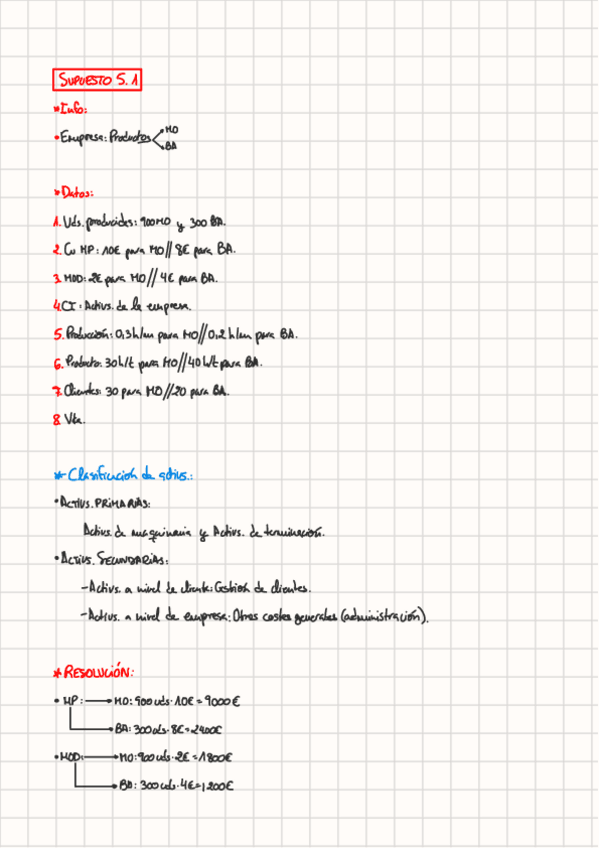 SUPUESTO 5.1
*Info:
• Empresa: Productos MO
BA
*Datos:
1. Uds. producidas: 900 MO y 300 BA.
2. Cu MP: 10€ para MO // 8€ para BA.
3. MOD: 2€ para MO // 4€ para BA.
4. CI: Activs. de la empresa.
5. Producción: 0,3 h/um para MO // 0,2 h/um para BA.
6. Producto: 30h/t para MO // 40h/t para BA.
7. Clientes: 30 para MO // 20 para BA.
8. Vta.
* Clasificación de activs.:
• ACTIVS. PRIMARIAS:
Activs. de maquinaria y Activs. de terminación.
• ACTIVS. SECUNDARIAS:
- Activs. a nivel de cliente: Gestión de clientes.
- Activs. a nivel de empresa: Otros costes generales (administración).
* RESOLUCIÓN:
• MP: MO: 900 uds · 10€ = 9000€
BA: 300 uds · 8€ = 2400€
• MOD: MO: 900 uds · 2€ = 1800€
BA: 300 uds · 4€ = 1200€